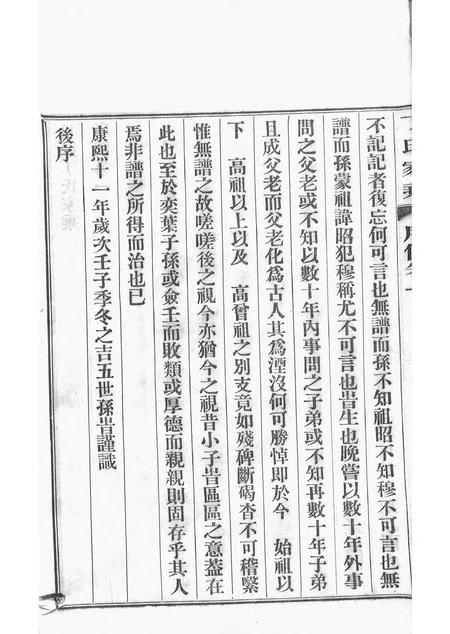 氏家乘
不記記者復忘何可言也無譜而孫不知祖昭不知穆不可言也無
譜而孫蒙祖諱昭犯穆稱尤不可言也昔生也晚嘗以數十年外事
問之父老或不知以數十年內事問之子弟或不知再數十年子弟
且成父老而父老化為古人其為湮沒何可勝悼即於今 始祖以
下 高祖以上以及 高曾祖之別支竟如殘碑斷碣杳不可稽繄
惟無譜之故嗟嗟後之視今亦猶今之視昔小子昔區區之意蓋在
此也至於奕葉子孫或僉壬而敗類或厚德而親親則固存乎其人
焉非譜之所得而治也已
康熙十一年歲次壬子季冬之吉五世孫昔謹識
後序